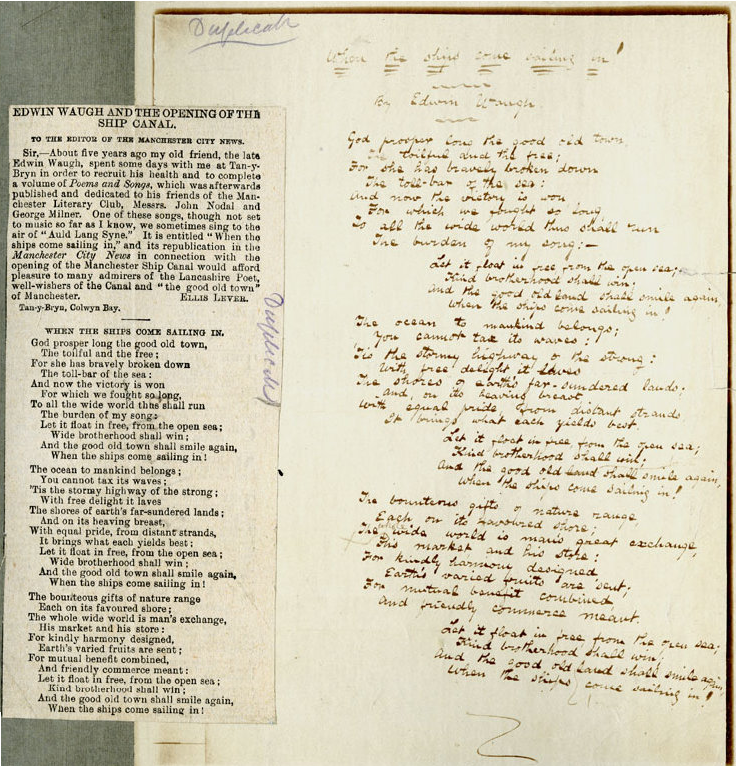 EDWIN WAUGH AND THE OPENING OF THE
SHIP CANAL.
TO THE EDITOR OF THE MANCHESTER CITY NEWS.
Sir,—About five years ago my old friend, the late
Edwin Waugh, spent some days with me at Tan-y-
Bryn in order to recruit his health and to complete
a volume of Poems and Songs, which was afterwards
published and dedicated to his friends of the Man-
chester Literary Club, Messrs. John Nodal and
George Milner. One of these songs, though not set
to music so far as I know, we sometimes sing to the
air of "Auld Lang Syne." It is entitled "When the
ships come sailing in," and its republication in the
Manchester City News in connection with the
opening of the Manchester Ship Canal would afford
pleasure to many admirers of the Lancashire Poet,
well-wishers of the Canal and "the good old town"
of Manchester. ELLIS LEVER.
Tan-y-Bryn, Colwyn Bay.
WHEN THE SHIPS COME SAILING IN.
God prosper long the good old town,
The toilful and the free;
For she has bravely broken down
The toll-bar of the sea:
And now the victory is won
For which we fought so long,
To all the wide world thus shall run
The burden of my song:
Let it float in free, from the open sea;
Wide brotherhood shall win;
And the good old town shall smile again,
When the ships come sailing in!
The ocean to mankind belongs;
You cannot tax its waves;
'Tis the stormy highway of the strong;
With free delight it laves
The shores of earth's far-sundered lands;
And on its heaving breast,
With equal pride, from distant strands,
It brings what each yields best;
Let it float in free, from the open sea;
Wide brotherhood shall win;
And the good old town shall smile again,
When the ships come sailing in!
The bounteous gifts of nature range
Each on its favoured shore;
The whole wide world is man's exchange,
His market and his store:
For kindly harmony designed,
Earth's varied fruits are sent;
For mutual benefit combined,
And friendly commerce meant:
Let it float in free, from the open sea;
Kind brotherhood shall win;
And the good old town shall smile again,
When the ships come sailing in!
Duplicate
Duplicate
When the ships come sailing in!
By Edwin Waugh
God prosper long the good old town,
The toilful and the free;
For she has bravely broken down
The toll-bar of the sea:
And now the victory is won
For which we fought so long
To all the wide world thus shall run
The burden of my song:—
Let it float in free from the open sea;
Kind brotherhood shall win;
And the good old land shall smile again,
When the ships come sailing in!
The ocean to mankind belongs;
You cannot tax its waves:
'Tis the stormy highway o the strong:
With free delight it laves
The shores of earth's far-sundered lands;
And, on its heaving breast,
With equal pride, from distant strands
It brings what each yields best.
Let it float in free from the open sea;
Kind brotherhood shall win;
And the good old land shall smile again,
When the ships come sailing in!
The bounteous gifts of nature range
Each on its favoured shore;
The whole wide world is man's great exchange,
His market and his store:
For kindly harmony designed
Earth's varied fruits are sent;
For mutual benefit combined
And friendly commerce meant.
Let it float in free from the open sea;
Kind brotherhood shall win;
And the good old land shall smile again,
When the ships come sailing in!